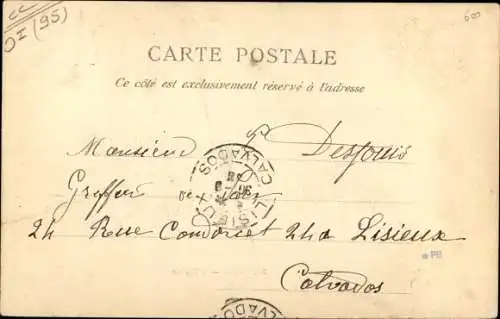 CC
OI (95)
600
CARTE POSTALE
Ce côté est exclusivement réservé à l'adresse
Monsieur P Desfouis
Greffier de Paix
24 Rue Condorcet 24 a Lisieux
Calvados
LISIEUX
CALVADOS
PH
CALVADOS